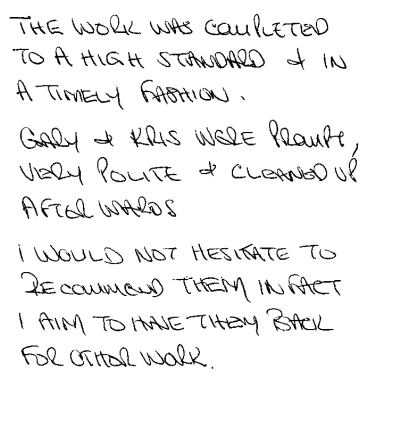 THE WORK WAS COMPLETED
TO A HIGH STANDARD & IN
A TIMELY FASHION.
GARY & KRIS WERE PROMPT,
VERY POLITE & CLEANED UP
AFTERWARDS
I WOULD NOT HESITATE TO
RECOMMEND THEM IN FACT
I AIM TO HAVE THEM BACK
FOR OTHER WORK.